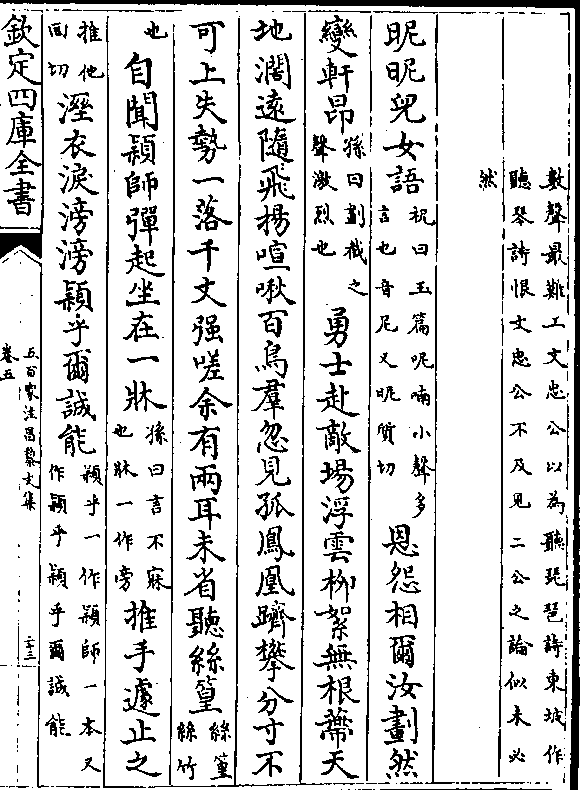 數聲最難工文忠公以為聽琵琶詩東坡作
聽琴詩恨文忠公不及見二公之論似未必
然
昵昵兒女語祝曰玉篇呢喃小聲多
言也音尼又昵質切恩怨相爾汝劃然
變軒昂孫曰劃檝之
聲激烈也勇士赴敵場浮雲柳絮無根蔕天
地濶遠隨飛揚喧啾百鳥羣忽見孤鳳凰躋攀分寸不
可上失勢一落千丈强嗟余有兩耳未省聽絲篁絲篁
絲竹
也自聞穎師彈起坐在一牀孫曰言不寐
也牀一作旁推手遽止之
推他
回切溼衣淚滂滂穎乎爾誠能穎乎一作穎師一本又
作穎乎穎乎爾誠能
欽定四庫全書
五百家注昌黎文集
卷五
二十三